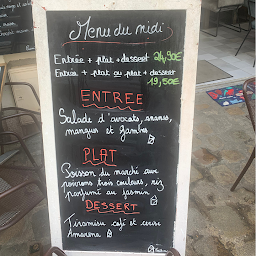 Menu du midi
Entree + plat + dessert 24,90€
Entree + plat ou plat + dessert
19,50€
ENTREE
Salade d'avocats, ananas,
mangues et gambas
PLAT
Poisson du marché aux
poivrons trois couleurs, riz
parfumé au jasmin
DESSERT
Tiramisu café et cerise
Amarena